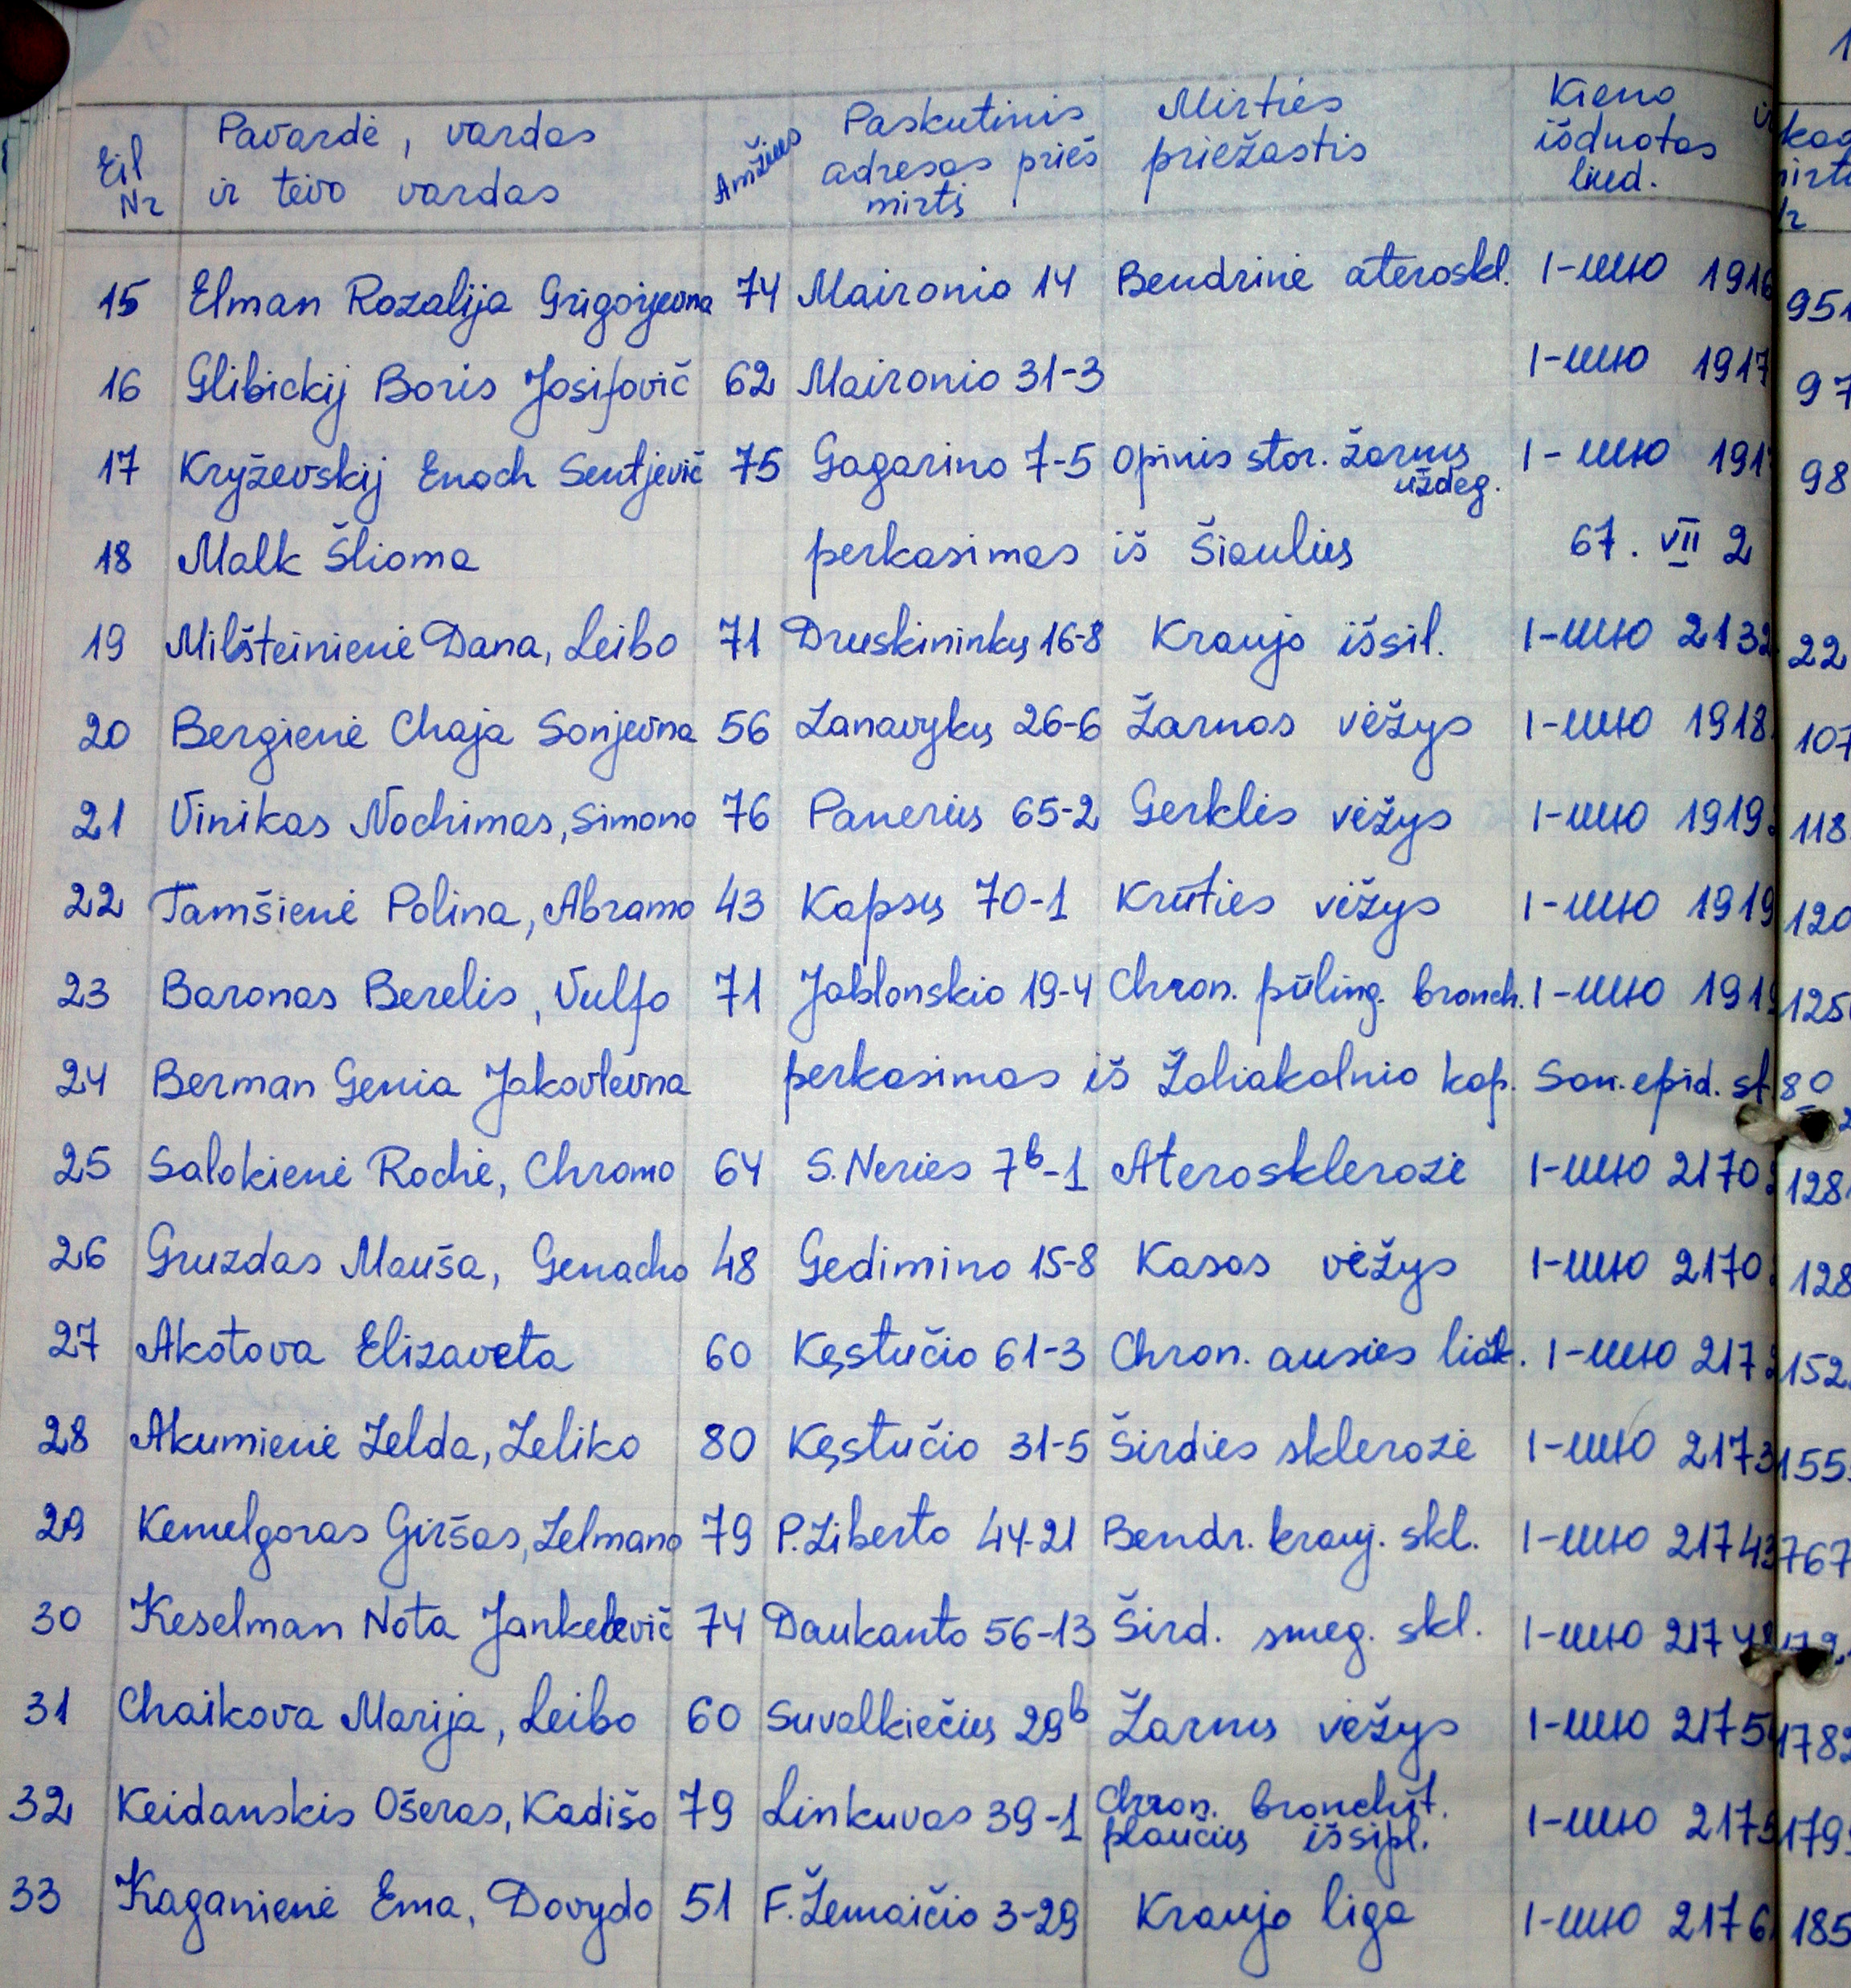 Eil Nr Pavardė, vardas ir tėvo vardas Amžius Paskutinis adresas prieš mirtį Mirties priežastis Kieno išduotas liud.
15 Elman Rozalija Grigorjevna 74 Maironio 14 Bendrinė ateroskl. I-MIO 1916 951
16 Glibickij Boris Josifovič 62 Maironio 31-3 I-MIO 1917 97
17 Kryževskij Enoch Sentjevič 75 Gagarino 7-5 Opinis stor. žarnų uždeg. I-MIO 191 98
18 Malk Šlioma perkasimas iš Šiaulių 67. VII 2
19 Milšteinienė Dana, Leibo 71 Druskininkų 16-8 Kraujo išsil. I-MIO 2132 22
20 Bergienė Chaja Sonjevna 56 Zanavykų 26-6 Žarnos vėžys I-MIO 1918 107
21 Vinikas Nochimas, Simono 76 Panerių 65-2 Gerklės vėžys I-MIO 1919 118
22 Tamšienė Polina, Abramo 43 Kapsų 70-1 Krūties vėžys I-MIO 1919 120
23 Baronas Berelis, Vulfo 71 Jablonskio 19-4 Chron. pūling. bronch. I-MIO 191 125
24 Berman Genia Jakovlevna perkasimas iš Žaliakalnio kap. San. epid. st 80
25 Salokienė Rochė, Chromo 64 S. Neries 7b-1 Aterosklerozė I-MIO 2170 128
26 Gruzdas Mauša, Genacho 48 Gedimino 15-8 Kasos vėžys I-MIO 2170 128
27 Akotova Elizaveta 60 Kęstučio 61-3 Chron. ausies I-MIO 217 152
28 Akumienė Zelda, Zeliko 80 Kęstučio 31-5 Širdies sklerozė I-MIO 2173 155
29 Kemelgoras Giršas, Zelmano 79 P. Ziberto 44-21 Bendr. krauj. skl. I-MIO 2174 767
30 Keselman Nota Jankelevič 74 Daukanto 56-13 Šird. smeg. skl. I-MIO 2174
31 Chaikova Marija, Leibo 60 Suvalkiečių 29b Žarnų vėžys I-MIO 2175 1782
32 Keidanskis Ošeras, Kadišo 79 Linkuvos 39-1 Chron. bronchit. plaučių išsipl. I-MIO 2175 179
33 Kaganienė Ema, Dovydo 51 F. Žemaičio 3-29 Kraujo liga I-MIO 2176 185